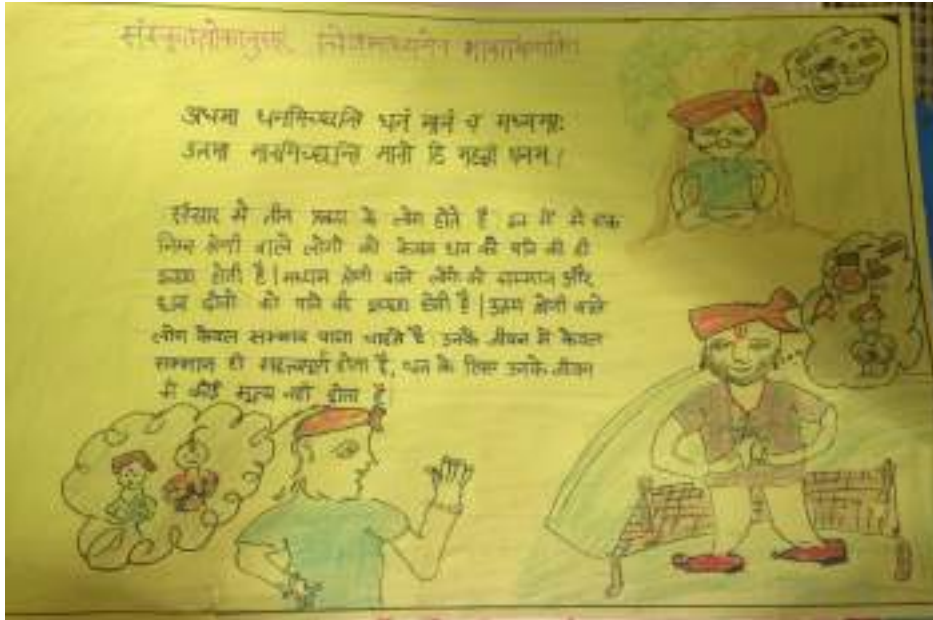 अधमा धनमिच्छन्ति धनं मानं च मध्यमाः
उत्तमा मानमिच्छन्ति मानो हि महतां धनम्।
संसार में तीन प्रकार के लोग होते है इन में से एक
निम्न श्रेणी वाले लोगों को केवल धन की पाने की ही
इच्छा होती है|मध्यम श्रेणी वाले लोगों को सम्मान और
धन दोनों को पाने की इच्छा होती है|उत्तम श्रेणी वाले
लोग केवल सम्मान पाना चाहते है उनके जीवन में केवल
सम्मान ही महत्वपूर्ण होता है, धन के लिए उनके जीवन
में कोई मूल्य नहीं होता है|